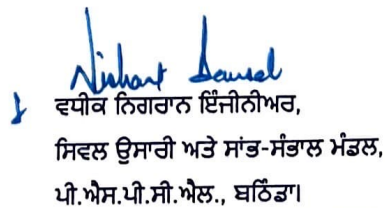 Nishant Bansal
ਵਧੀਕ ਨਿਗਰਾਨ ਇੰਜੀਨੀਅਰ,
ਸਿਵਲ ਉਸਾਰੀ ਅਤੇ ਸਾਂਭ-ਸੰਭਾਲ ਮੰਡਲ,
ਪੀ.ਐਸ.ਪੀ.ਸੀ.ਐਲ., ਬਠਿੰਡਾ।